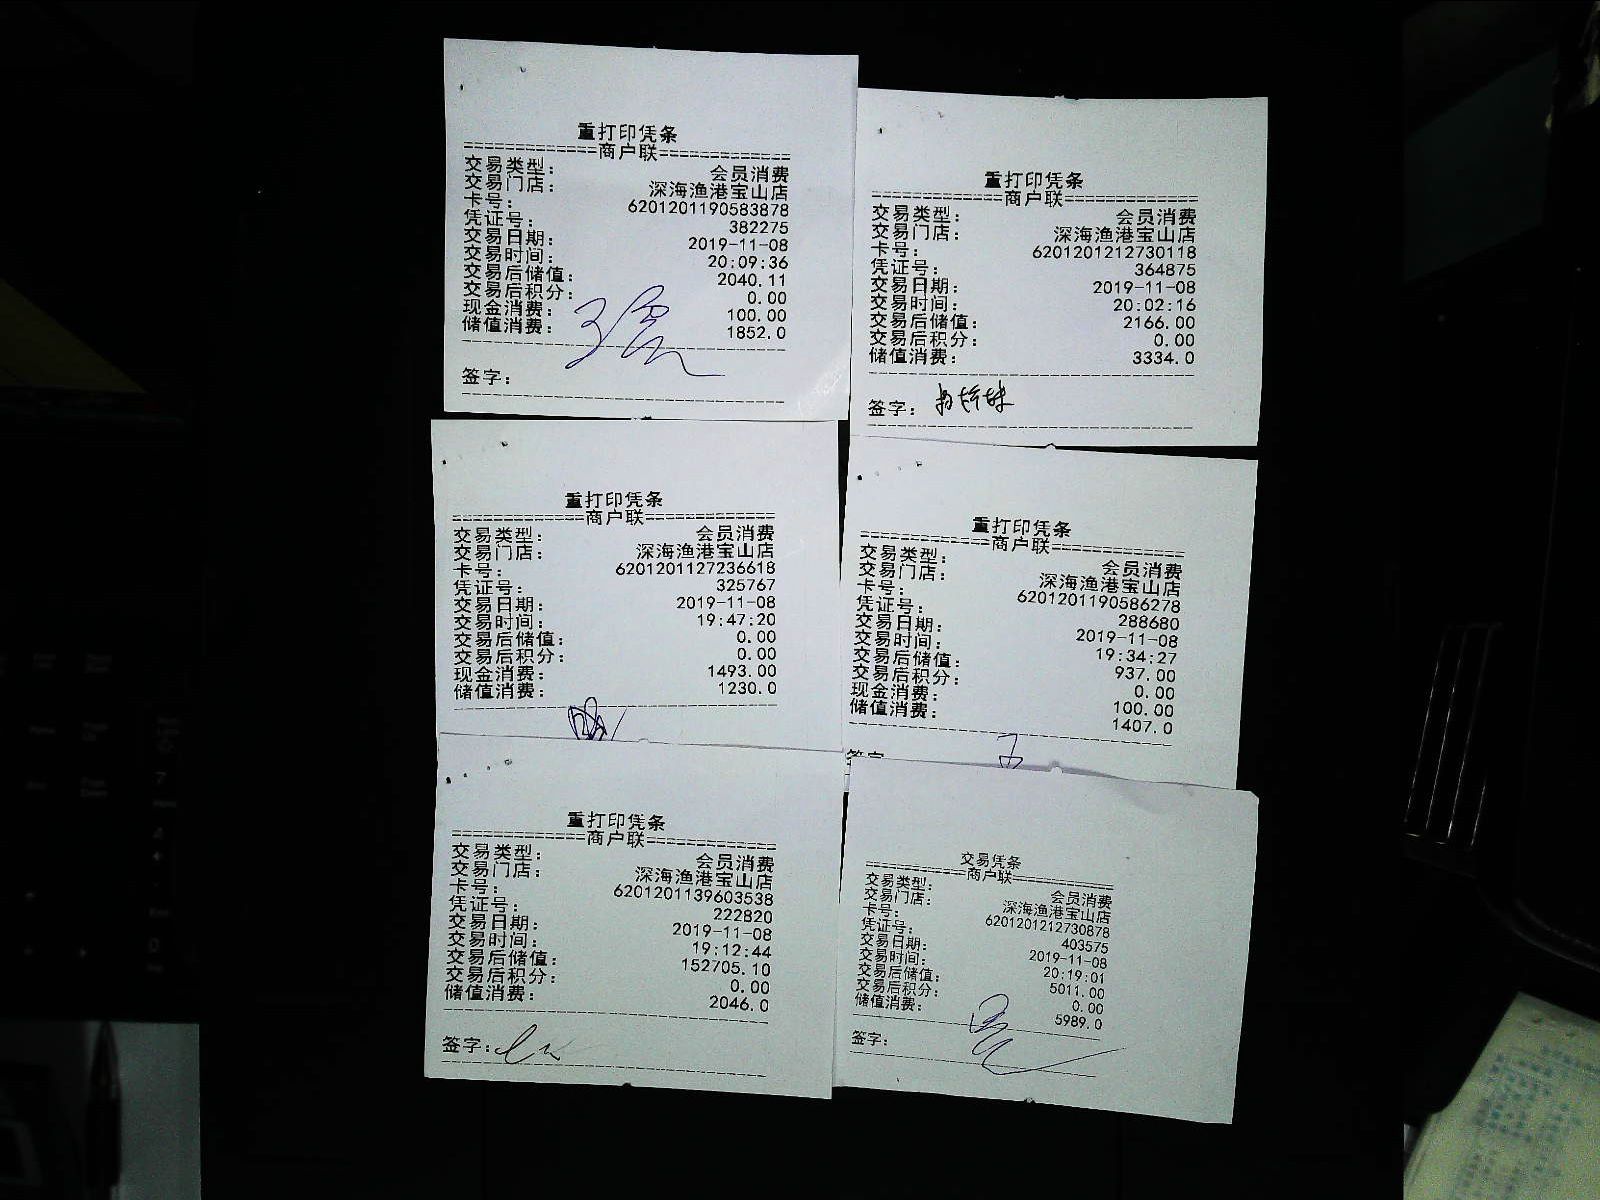 重打印凭条
=============商户联=============
交易类型： 会员消费
交易门店： 深海渔港宝山店
卡号： 6201201190583878
凭证号： 382275
交易日期： 2019-11-08
交易时间： 20:09:36
交易后储值： 2040.11
交易后积分： 0.00
现金消费： 100.00
储值消费： 1852.0
签字：
重打印凭条
=============商户联=============
交易类型： 会员消费
交易门店： 深海渔港宝山店
卡号： 6201201212730118
凭证号： 364875
交易日期： 2019-11-08
交易时间： 20:02:16
交易后储值： 2166.00
交易后积分： 0.00
储值消费： 3334.0
签字：
重打印凭条
=============商户联=============
交易类型： 会员消费
交易门店： 深海渔港宝山店
卡号： 6201201127236618
凭证号： 325767
交易日期： 2019-11-08
交易时间： 19:47:20
交易后储值： 0.00
交易后积分： 0.00
现金消费： 1493.00
储值消费： 1230.0
重打印凭条
=============商户联=============
交易类型： 会员消费
交易门店： 深海渔港宝山店
卡号： 6201201190586278
凭证号： 288680
交易日期： 2019-11-08
交易时间： 19:34:27
交易后储值： 937.00
交易后积分： 0.00
现金消费： 100.00
储值消费： 1407.0
签字
重打印凭条
=============商户联=============
交易类型： 会员消费
交易门店： 深海渔港宝山店
卡号： 6201201139603538
凭证号： 222820
交易日期： 2019-11-08
交易时间： 19:12:44
交易后储值： 152705.10
交易后积分： 0.00
储值消费： 2046.0
签字：
交易凭条
=============商户联=============
交易类型： 会员消费
交易门店： 深海渔港宝山店
卡号： 6201201212730878
凭证号： 403575
交易日期： 2019-11-08
交易时间： 20:19:01
交易后储值： 5011.00
交易后积分： 0.00
储值消费： 5989.0
签字：